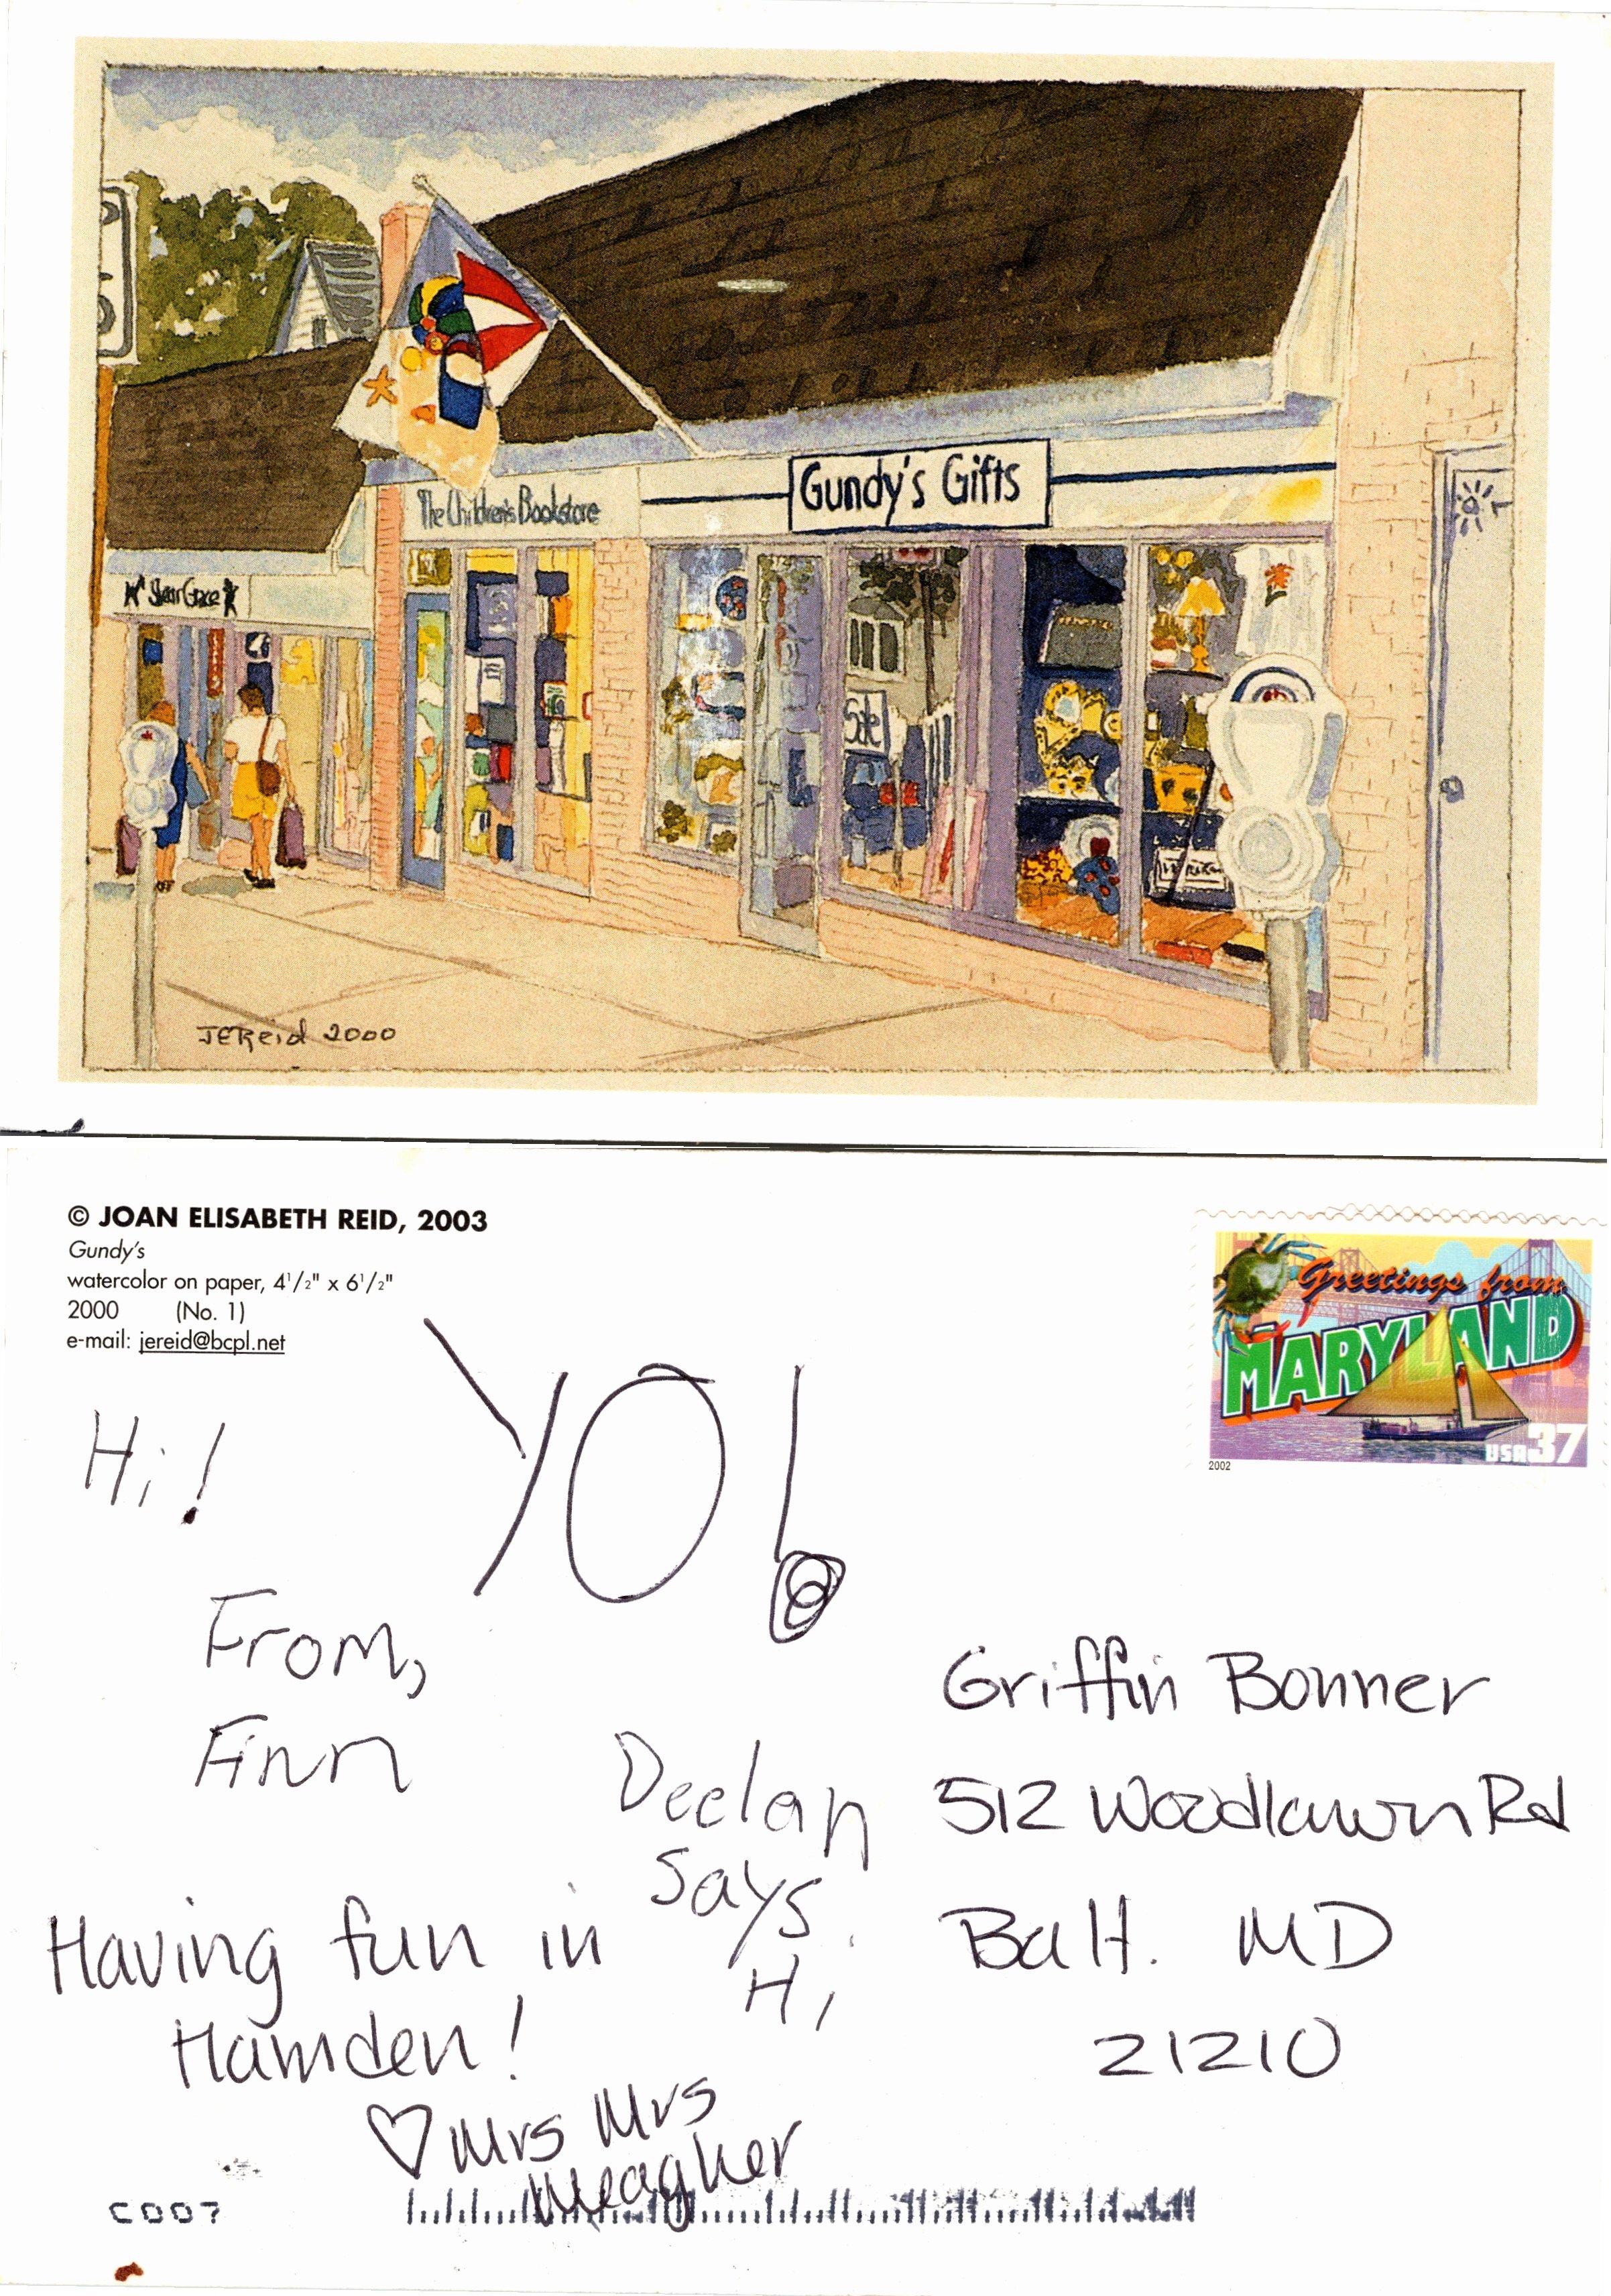 The Children's Bookstore
Gundy's Gifts
Sale
JEReid 2000
© JOAN ELISABETH REID, 2003
Gundy's
watercolor on paper, 4 1/2" x 6 1/2"
2000 (No. 1)
e-mail: jereid@bcpl.net
Greetings from
MARYLAND
USA 37
2002
Hi!
YO!
From,
Finn
Declan
says
Hi
Having fun in
Hamden!
♡ Mrs Mrs
Meagher
Griffin Bonner
512 Woodlawn Rd
Balt. MD
21210
C007